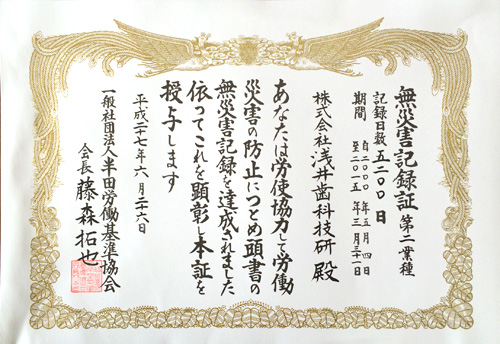 無災害記録証 第二業種
記録日数 五二〇〇 日
期間 自二〇〇〇年五月四日
至二〇一五年三月三十一日
株式会社 浅井歯科技研 殿
あなたは労使協力して労働
災害の防止につとめ頭書の
無災害記録を達成されました
依ってこれを顕彰し本証を
授与します
平成二十七年六月二十六日
一般社団法人半田労働基準協会
会長 藤森拓也